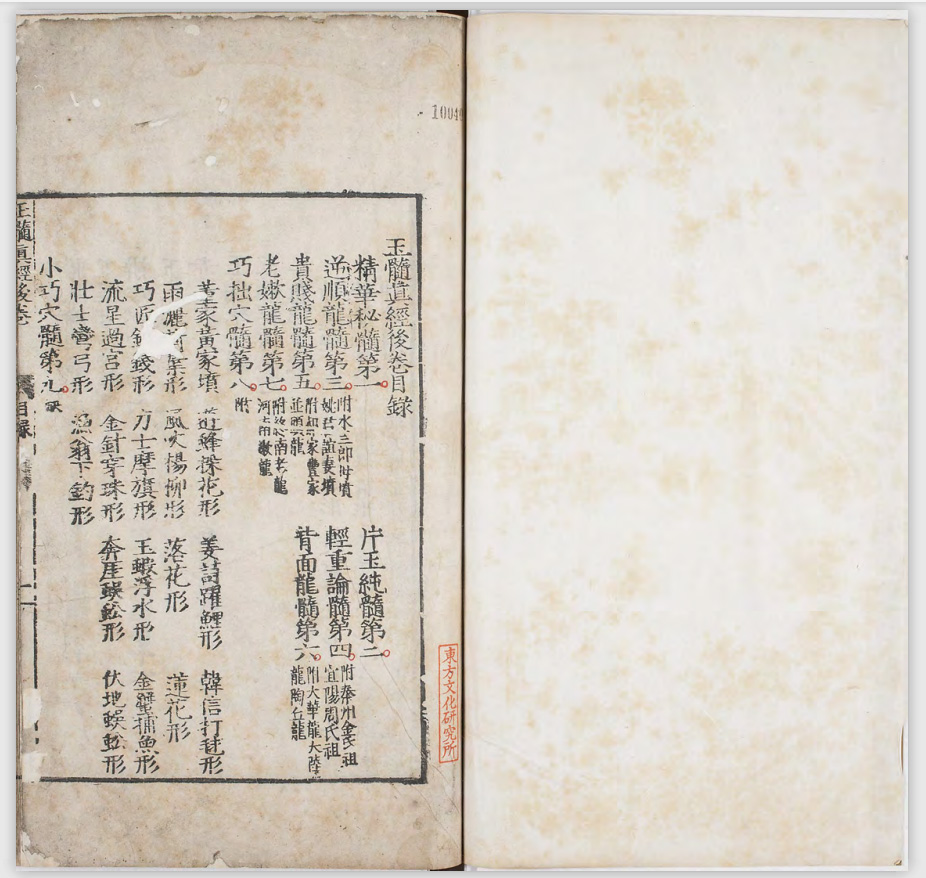 玉髓真經後卷目錄
精華秘髓第一 片玉純髓第二
逆順龍髓第三 附水三郎母墳 姚君誼妻墳 輕重論髓第四 附秦州金氏祖 宜陽周氏祖
貴賤龍髓第五 附 家豊家 並頭龍 背面龍髓第六 附大華龍大陸 龍陶丘龍
老嫩龍髓第七 附 南老龍 河南嫩龍
巧拙穴髓第八 附
黃家墳 遊蜂採花形 姜詩躍鯉形 韓信打毬形
雨 形 風吹楊柳形 落花形 蓮花形
巧匠 錢形 力士摩旗形 玉蝦浮水形 金 捕魚形
流星過宮形 金針穿珠形 奔崖蜈蚣形 伏地蜈蚣形
壯士彎弓形 漁翁下釣形
小巧穴髓第九 缺
玉髓真經後卷 目錄 一
10040
東方文化研究所